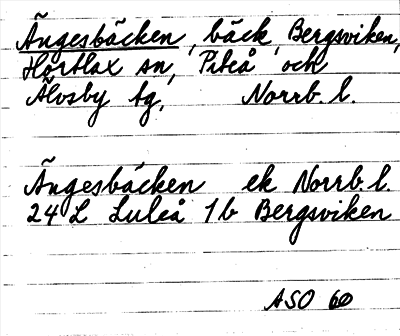 Ängesbäcken, bäck, Bergsviken,
Hortlax sn, Piteå och
Älvsby tg, Norrb. l.
Ängesbäcken ek Norrb. l
24 L Luleå 1b Bergsviken
ASO 60